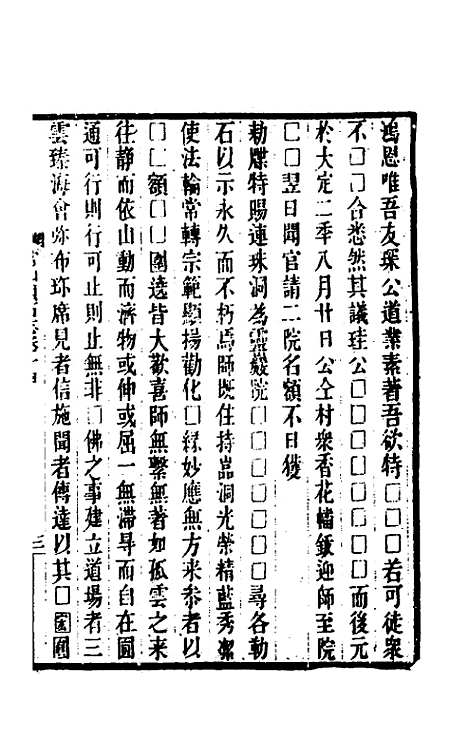 鴻恩唯吾友琛公道業素著吾欲特□□□□若可徒衆
不□□合悉然其議珪公□□□□□□□□而後元
於大定二年八月廿日公仝村衆香花幡鈸迎師至院
□□翌日聞官請二院名額不日獲
勅牒特賜連珠洞為靈巖院□□□□□□尋各勒
石以示永久而不朽焉師既住持嵓洞光榮精藍秀潔
使法輪常轉宗範顯揚勸化□緣妙應無方來叅者以
□□額□□圍遶皆大歡喜師無繫無著如孤雲之來
往静而依山動而濟物或伸或屈一無滯㝵而自在圓
通可行則行可止則止無非□佛之事建立道場者三
雲臻海會弥布珎席見者信施聞者傳達以其□園圃
三